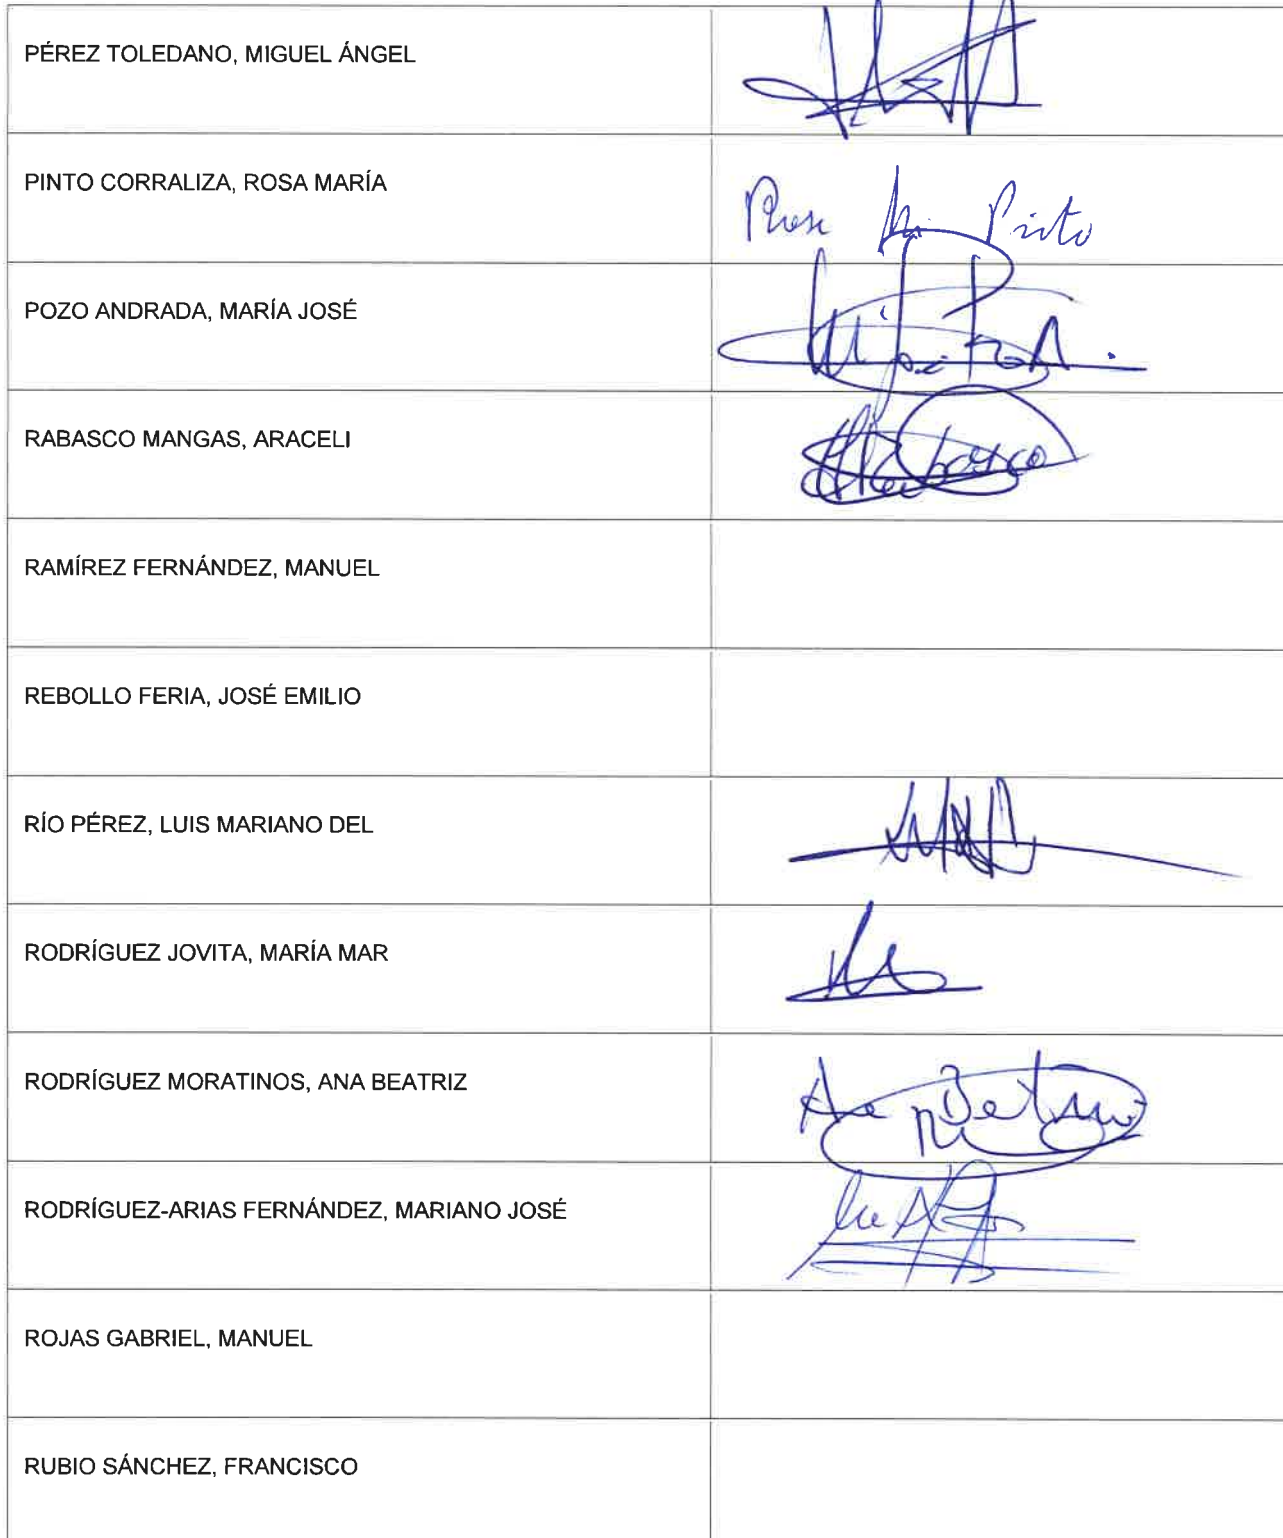 PÉREZ TOLEDANO, MIGUEL ÁNGEL
PINTO CORRALIZA, ROSA MARÍA
Rosa Mª Pinto
POZO ANDRADA, MARÍA JOSÉ
RABASCO MANGAS, ARACELI
Rabasco
RAMÍREZ FERNÁNDEZ, MANUEL
REBOLLO FERIA, JOSÉ EMILIO
RÍO PÉREZ, LUIS MARIANO DEL
RODRÍGUEZ JOVITA, MARÍA MAR
RODRÍGUEZ MORATINOS, ANA BEATRIZ
Ana Beatriz
RODRÍGUEZ-ARIAS FERNÁNDEZ, MARIANO JOSÉ
ROJAS GABRIEL, MANUEL
RUBIO SÁNCHEZ, FRANCISCO